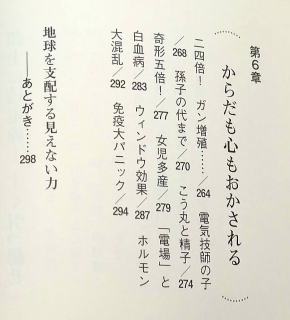 第6章
からだも心もおかされる
二四倍！ ガン増殖……/264 電気技師の子
/268 孫子の代まで/270 こう丸と精子/274
奇形五倍！/277 女児多産/279 「電場」と
白血病/283 ウィンドウ効果/287 ホルモン
大混乱/292 免疫大パニック/294
地球を支配する見えない力
――あとがき……298